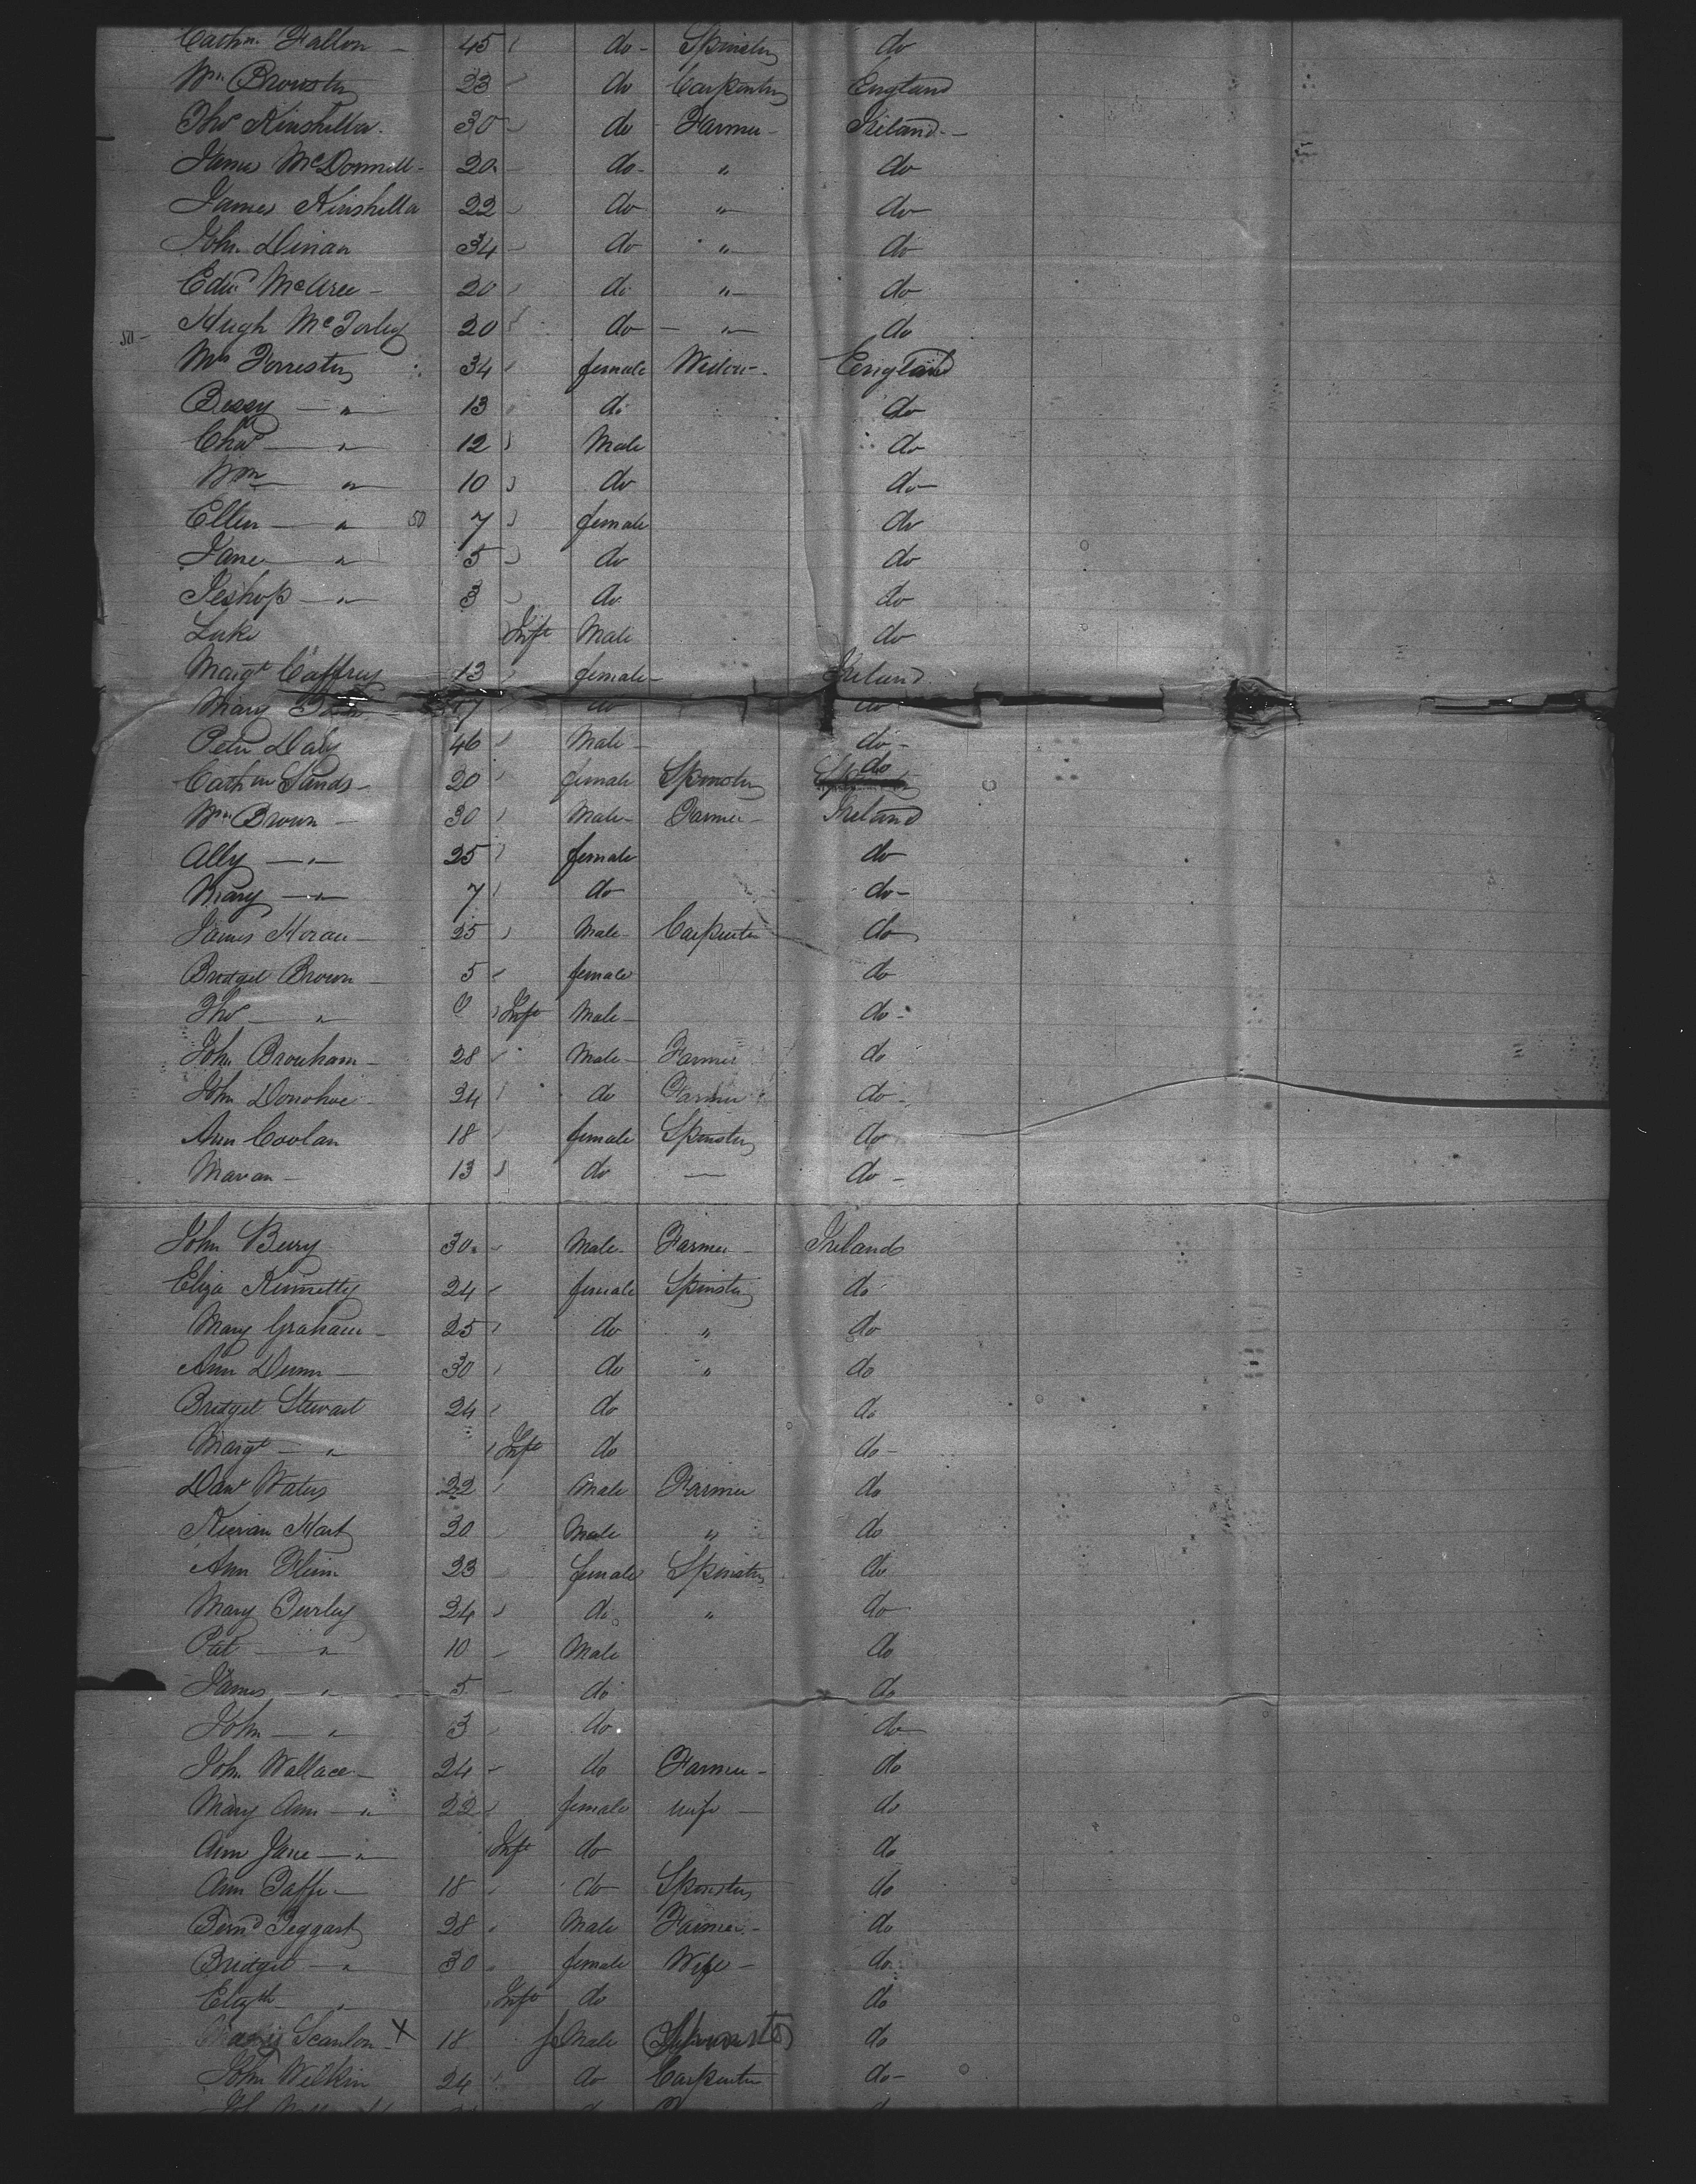 Cathn. Fallon — 45 do - Spinster do
Wm Brewster 23 do Carpenter England
Thos Kinshella 30 do - Farmer - Ireland -
James McDonnell - 20 do - " do
James Kinshella 22 do " do
John Dinan 34 do " do
Edwd McAree - 20 do " do
50 - Hugh McTorley 20 do - " do
Mrs Forrester 34 female Widow - England
Bessy — " 13 do do
Chas — " 12 Male do
Wm — " 10 do do
Ellen — " 50 7 female do
Jane — " 5 do do
Jeshop — " 3 do do
Luke Inft Male do
Margt Caffrey 13 female - Ireland
Mary 17 do do
Peter Daly 46 Male - do -
Cathne Sands - 20 female Spinster do
Wm Brown — 30 Male - Farmer - Ireland
Ally — " 25 female do
Mary — " 7 do do -
James Horan - 25 Male - Carpenter do
Bridget Brown - 5 female do
Thos — " 0 Inft Male - do -
John Brouham - 28 Male - Farmer do
John Donohoe - 24 do Farmer do -
Ann Coolan 18 female Spinster do
Mavan - 13 do — do -
John Berry 30 Male - Farmer - Ireland
Eliza Kennetty 24 female Spinster do
Mary Graham - 25 do " do
Ann Dunn - 30 do " do
Bridget Stewart 24 do do
Margt — " Inft do do -
Danl Waters 22 Male Farmer do
Kieran Hart 20 Male " do
Ann Flinn 23 female Spinster do
Mary Turley 24 do " do
Pat — " 10 Male do
James — " 5 do do
John — " 3 do do
John Wallace - 24 do Farmer - do
Mary Ann — " 22 female wife — do
Ann Jane — " Inft do do
Ann Taffe - 18 do Spinster do
Bernd Teggart 28 Male Farmer - do
Bridget — " 30 female Wife - do
Elizth " Inft do do
Scanlon X 18 feMale do
John Wilkin 24 do Carpenter do -